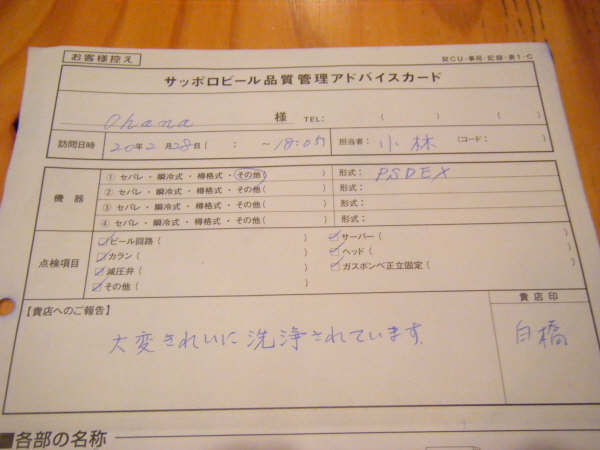 お客様控え
関CU-事務-記録-第1-C
サッポロビール品質管理アドバイスカード
Ohana 様 TEL: ( ) ( )
訪問日時 20年2月28日( : ~18:07) 担当者: 小林 (コード: )
機器 ① セパレ・瞬冷式・樽格式・その他( ) 形式: PSDEX
② セパレ・瞬冷式・樽格式・その他( ) 形式:
③ セパレ・瞬冷式・樽格式・その他( ) 形式:
④ セパレ・瞬冷式・樽格式・その他( ) 形式:
点検項目 ビール回路( ) サーバー( )
カラン( ) ヘッド( )
減圧弁( ) ガスボンベ正立固定( )
その他( )
【貴店へのご報告】 貴店印
大変きれいに洗浄されています。 白橋
■各部の名称